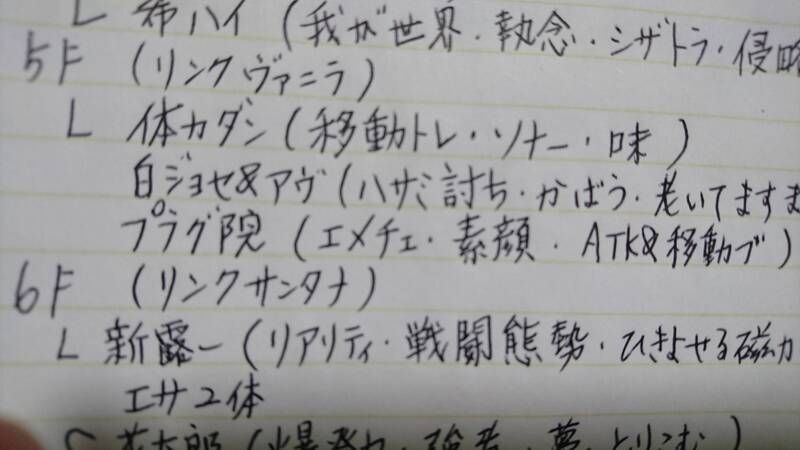 L 希ハイ (我が世界・執念・シザトラ・侵略
5F (リンクヴァニラ)
L 体カダシ (移動トレ・ソナー・味)
白ジョセ&アヴ (ハサミ討ち・かばう・老いてますま
プラグ院 (エメチェ・素顔・ATK&移動ブ)
6F (リンクサンタナ)
L 新露一 (リアリティ・戦闘態勢・ひきよせる磁力
エサ2体